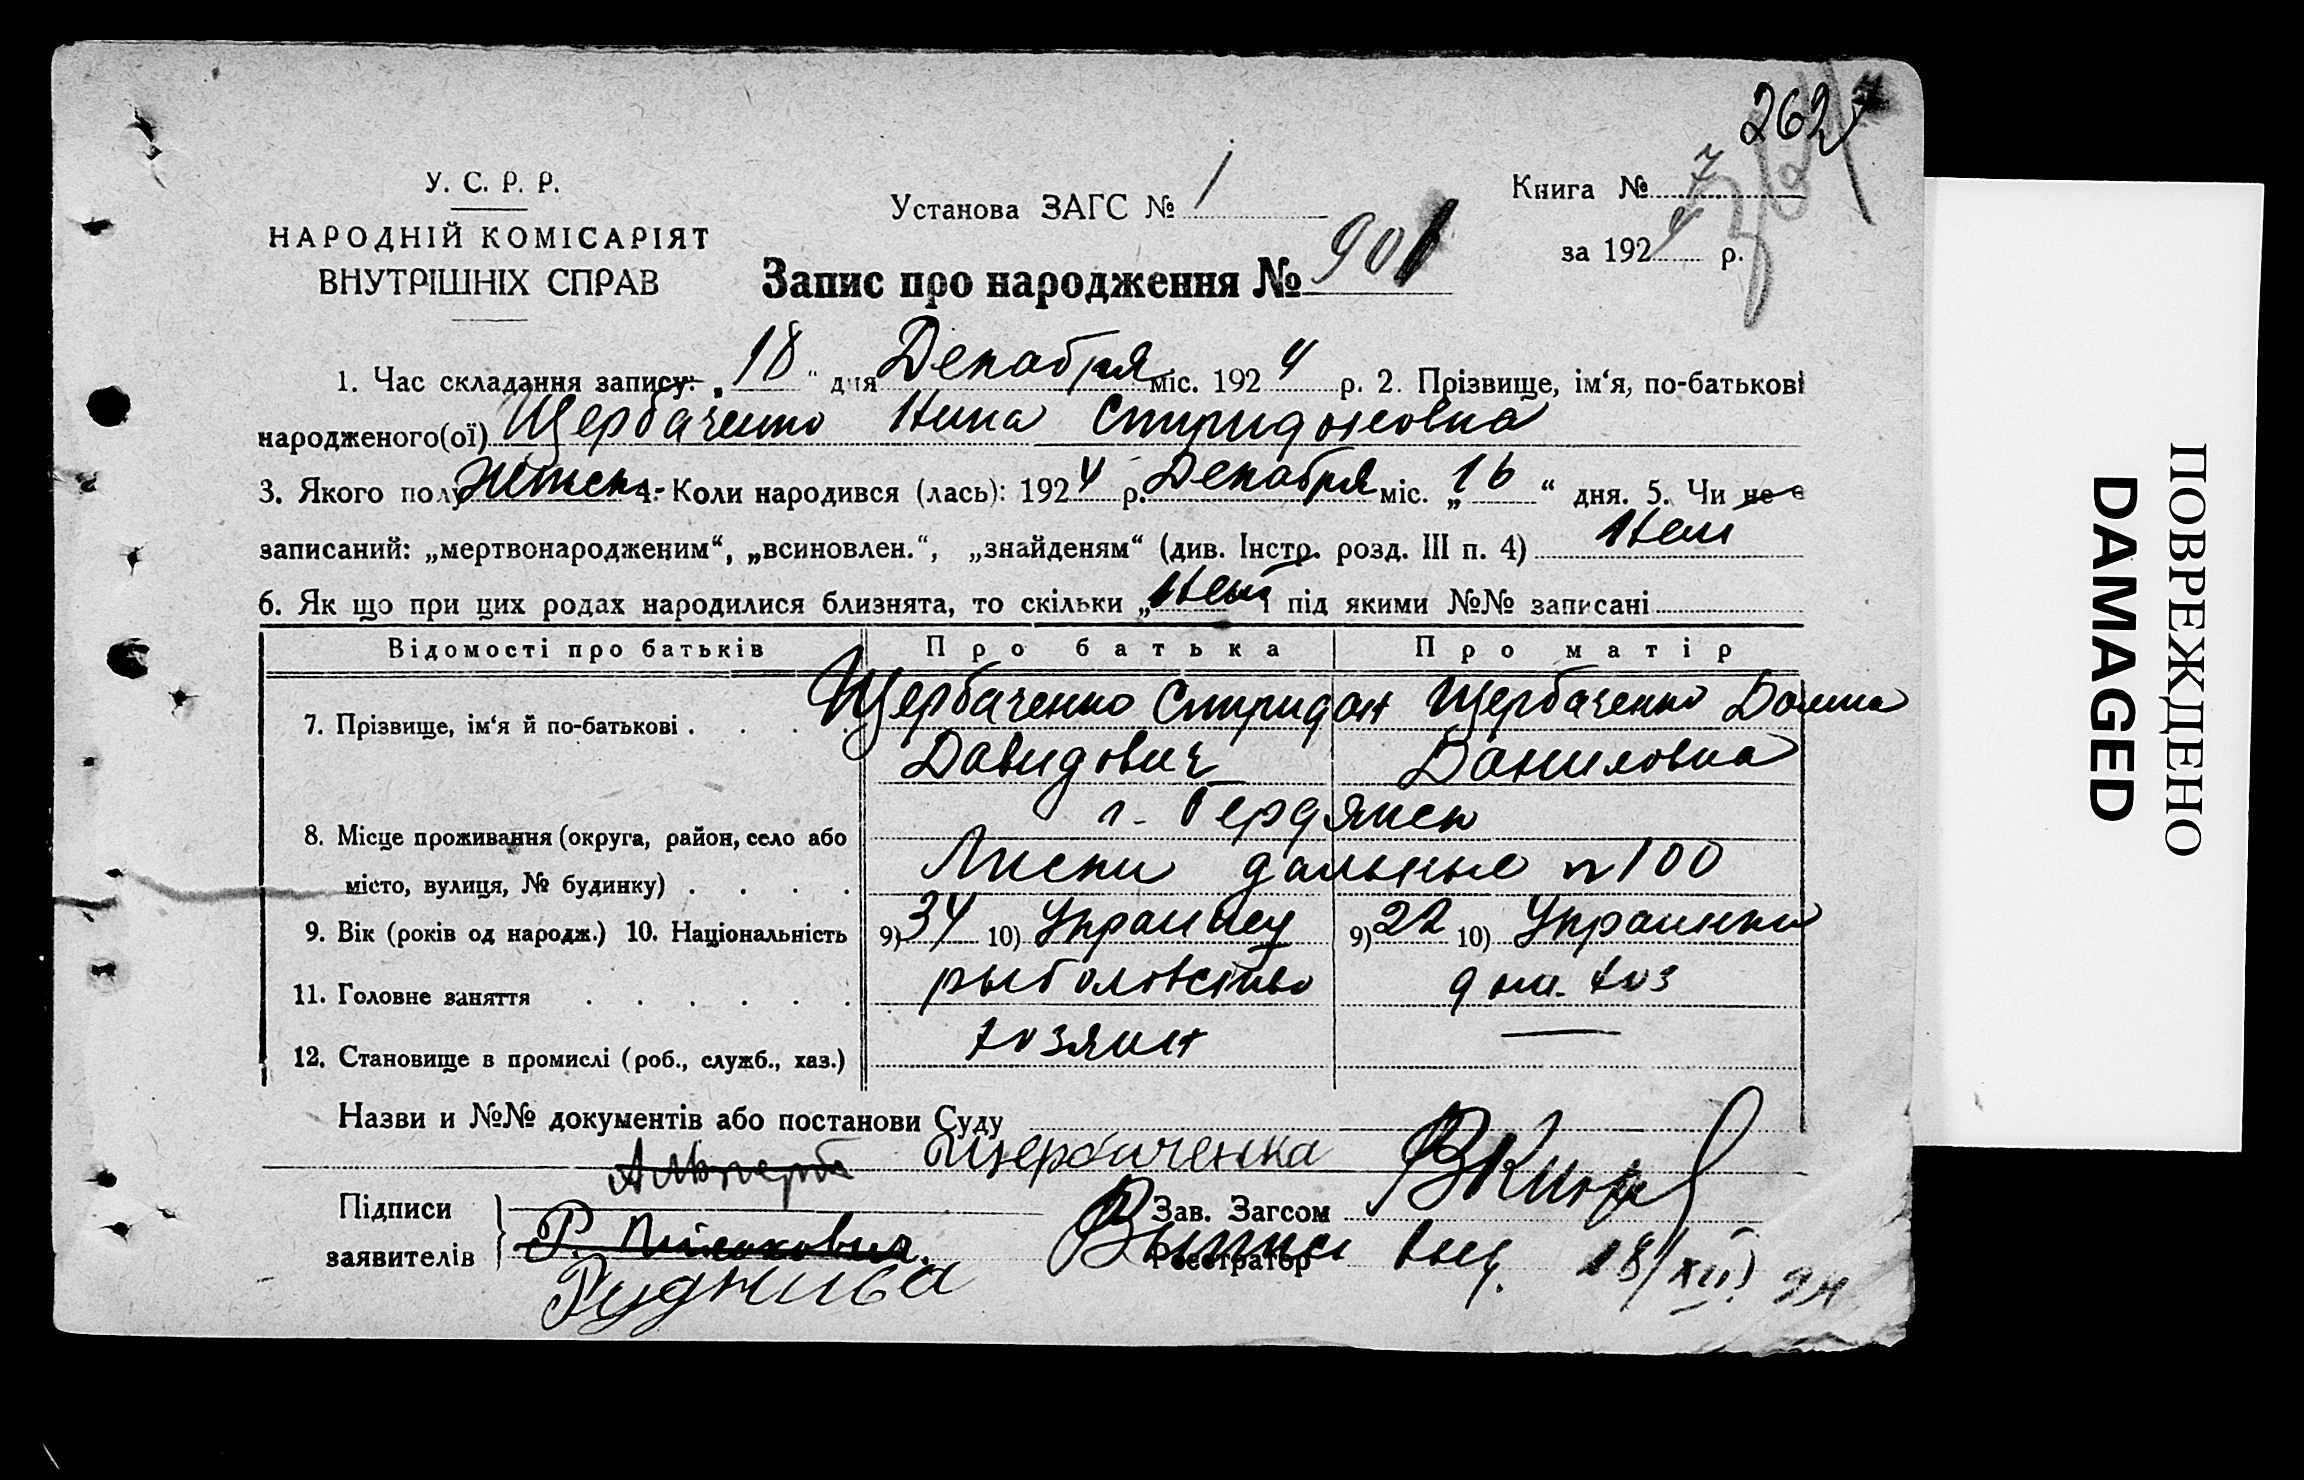 2627
У. С. Р. Р.
НАРОДНІЙ КОМІСАРІЯТ
ВНУТРІШНІХ СПРАВ
Установа ЗАГС № 1
Книга № 7
за 1924 р.
Запис про народження № 901
1. Час складання запису: „18“ дня Декабря міс. 1924 р. 2. Прізвище, ім‘я, по-батькові
народженого(ої) Щербаченко Нина Спиридоновна
3. Якого полу Женск. 4. Коли народився (лась): 1924 р. Декабря міс. „16“ дня. 5. Чи не є
записаний: „мертвонародженим“, „всиновлен.“, „знайденям“ (див. Інстр. розд. III п. 4) Нет
6. Як що при цих родах народилися близнята, то скільки „Нет і під якими №№ записані
Відомості про батьків Про батька Про матір
7. Прізвище, ім‘я й по-батькові . . . . Щербаченко Спиридон Щербаченко
Давидович Даниловна
г. Бердянск
8. Місце проживання (округа, район, село або
місто, вулиця, № будинку) . . . . Лиски дальные № 100
9. Вік (років од народж.) 10. Національність 9) 34 10) Украинец 9) 22 10) Украинка
11. Головне заняття . . . . . . рыболовство дом. хоз
12. Становище в промислі (роб., служб., хаз.) хозяин —
Назви и №№ документів або постанови Суду
Щербаченка
Підписи
заявителів
Зав. Загсом
Реєстратор
Выпис выд. 18/XII 24
ПОВРЕЖДЕНО
DAMAGED